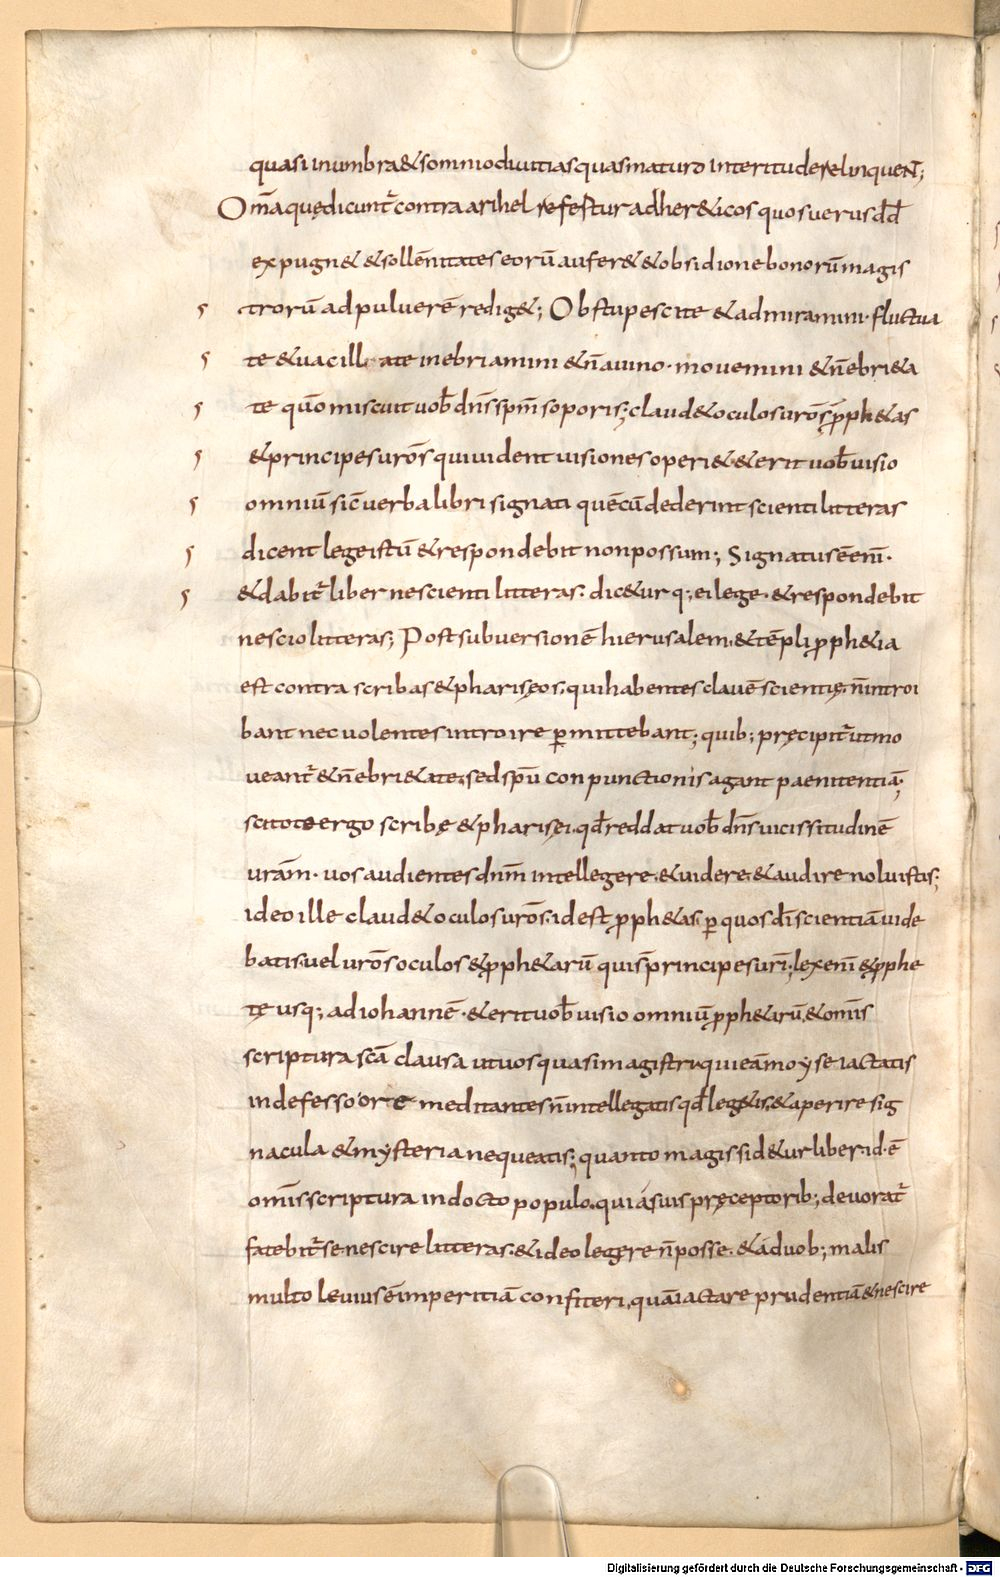 quasi in umbra & somnio divitias quas maturo interitu derelinquent;
Om̅a quę dicunt᷑ contra arihel refertur ad her&icos quos uerus d̅d̅
expugn& & sollēnitates eorū aufer& & obsidione bonorū magis
trorū ad puluerē redig&; Obstupescite & admiramini· fluctua
te & uacillate inebriamini & n̄ a uino· mouemini & n̄ ebri&a
te quo̅ miscuit uob̅ dn̅s sp̅m soporis; claud& oculos ur̅os p̲roph&as
& principes ur̅os qui uident uisiones operi& & erit uob̅ uisio
omniū sic̅ uerba libri signati quē cū dederint scienti litteras
dicent lege istū & respondebit non possum; Signatus ē eni̅·
& dabit᷑ liber nescienti litteras· dic&ur q; ei lege· & respondebit
nescio litteras; Post subuersionē hierusalem, & tēpli p̲roph&ia
est contra scribas & phariseos, qui habentes clauē scientię, n̄ introi
bant nec uolentes introire p̲mittebant; quib; pręcipit᷑ ut mo
ueant᷑ & n̄ ebri&ate; sed sp̅u conpunctionis agant paenitentiā;
scitote ergo scribę & pharisei· qd̅ reddat uob̅ dn̅s uicissitudinē
ur̅am· uos audientes dn̅m intellegere, & uidere, & audire noluistis;
ideo ille claud& oculos ur̅os· id est p̲roph&as, p̲ quos di̅ scientiā uide
batis· uel ur̅os oculos & p̲roph&arū quis principes ur̅i; lex eni̅ & p̲rophe
tę usq; ad iohannē· & erit uob̅ uisio omniū p̲roph&arū, & om̅is
scriptura sc̅a clausa ut uos quasi magistri qui eā moyse iactatis
indefesso ore meditantes n̄ intellegatis qd̅ leg&is, & aperire sig
nacula & mysteria nequeatis; quanto magis si d&ur liber· id·ē
om̅is scriptura indocto populo· qui a suis pręceptorib; deuorat᷑
fatebit᷑ se nescire litteras· & ideo legere n̄ posse· & a duob; malis
multo leuius ē imperitiā confiteri, quā iactare prudentiā & nescire
Digitalisierung gefördert durch die Deutsche Forschungsgemeinschaft - DFG